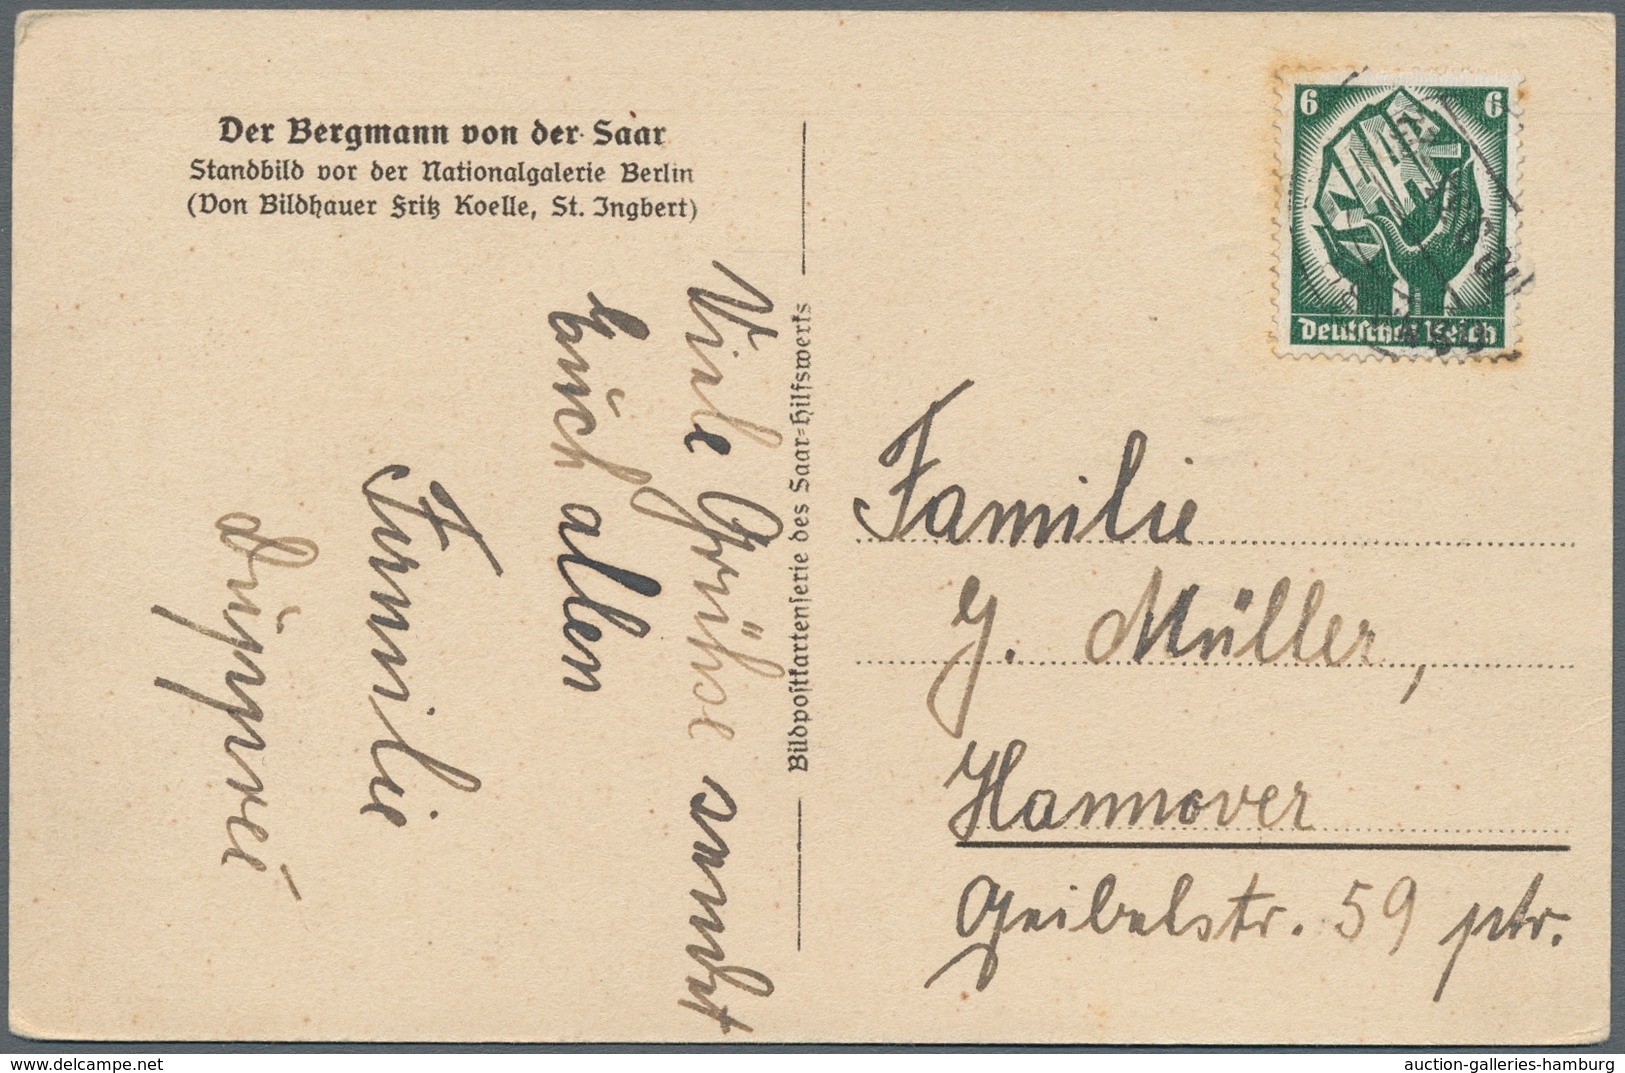 Der Bergmann von der Saar
Standbild vor der Nationalgalerie Berlin
(Von Bildhauer Fritz Koelle, St. Ingbert)
Viele Grüße sendet
Euch allen
Familie
Bildpostkartenserie des Saar-Hilfswerks
6 6
SAAR
Deutsches Reich
Familie
J. Müller,
Hannover
Geibelstr. 59 ptr.
www.delcampe.net
auction-galleries-hamburg